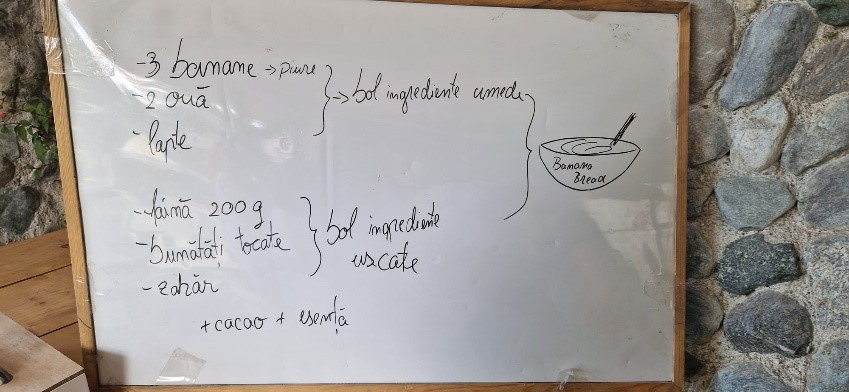 -3 banane → piure
-2 ouă
-lapte
→ bol ingrediente umede
Banana
Bread
-făină 200 g
-bunătăți tocate
-zahăr
bol ingrediente
uscate
+ cacao + esență